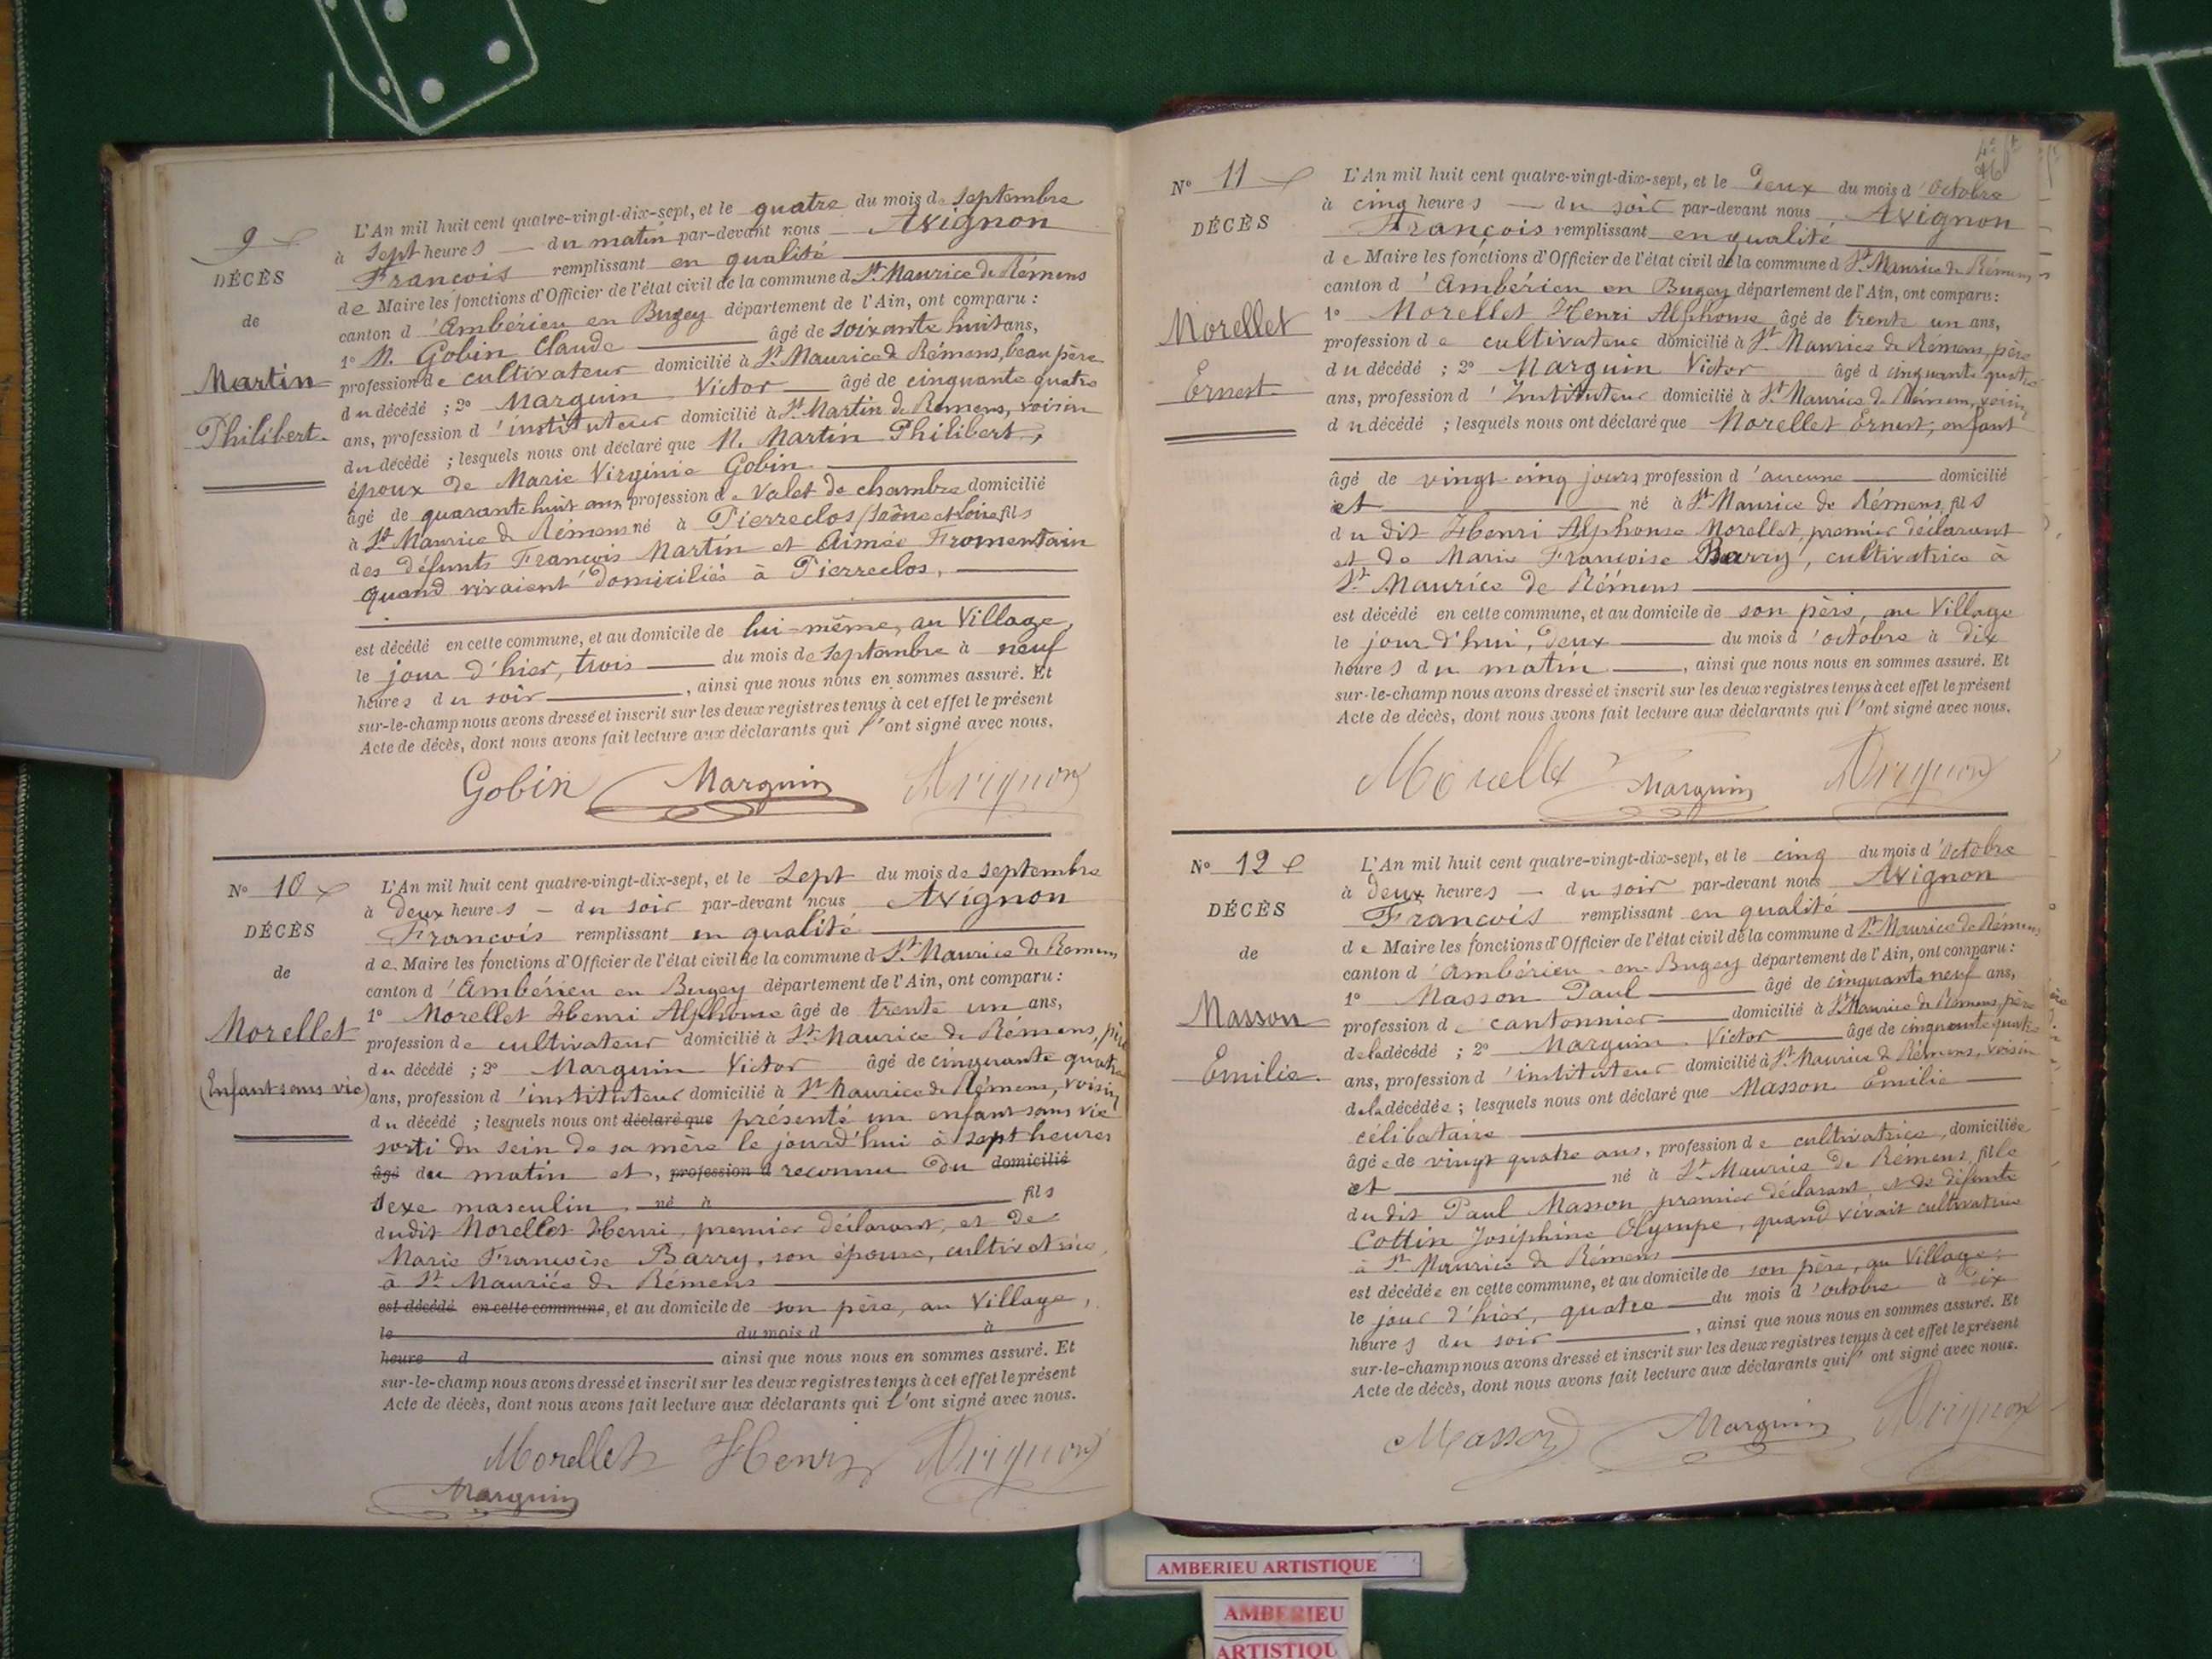 9
DÉCÈS
de
Martin
Philibert.
L'An mil huit cent quatre-vingt-dix-sept, et le quatre du mois de septembre
à sept heures du matin par-devant nous Avignon
François remplissant en qualité
de Maire les fonctions d'Officier de l'état civil de la commune d St Maurice de Rémens
canton d'Ambérieu en Bugey département de l'Ain, ont comparu :
1° M. Gobin Claude âgé de soixante huit ans,
profession de cultivateur domicilié à St Maurice de Rémens, beau père
du décédé ; 2° Marguin Victor âgé de cinquante quatre
ans, profession d'instituteur domicilié à St Martin de Rémens, voisin
du décédé ; lesquels nous ont déclaré que M. Martin Philibert,
époux de Marie Virginie Gobin
âgé de quarante huit ans profession de valet de chambre domicilié
à St Maurice de Rémens né à Pierreclos (Saône et Loire fils
des défunts François Martin et Aimée Fromentain
quand vivaient domiciliés à Pierreclos,
est décédé en cette commune, et au domicile de lui-même, au Village,
le jour d'hier, trois du mois de septembre à neuf
heures du soir, ainsi que nous nous en sommes assuré. Et
sur-le-champ nous avons dressé et inscrit sur les deux registres tenus à cet effet le présent
Acte de décès, dont nous avons fait lecture aux déclarants qui l'ont signé avec nous.
Gobin Marguin Avignon
N° 10
DÉCÈS
de
Morellet
(Enfant sans vie)
L'An mil huit cent quatre-vingt-dix-sept, et le sept du mois de septembre
à deux heures du soir par-devant nous Avignon
François remplissant en qualité
de Maire les fonctions d'Officier de l'état civil de la commune d St Maurice de Rémens
canton d'Ambérieu en Bugey département de l'Ain, ont comparu :
1° Morellet Henri Alphonse âgé de trente un ans,
profession de cultivateur domicilié à St Maurice de Rémens, père
du décédé ; 2° Marguin Victor âgé de cinquante quatre
ans, profession d'instituteur domicilié à St Maurice de Rémens, voisin
du décédé ; lesquels nous ont déclaré que présenté un enfant sans vie
sorti du sein de sa mère le jourd'hui à sept heures
âgé du matin et, profession d reconnu du domicilié
sexe masculin. né à fils
dudit Morellet Henri, premier déclarant, et de
Marie Françoise Barry, son épouse, cultivatrice,
à St Maurice de Rémens
est décédé en cette commune, et au domicile de son père, au Village,
le du mois d à
heure d ainsi que nous nous en sommes assuré. Et
sur-le-champ nous avons dressé et inscrit sur les deux registres tenus à cet effet le présent
Acte de décès, dont nous avons fait lecture aux déclarants qui l'ont signé avec nous.
Morellet Henri Avignon
Marguin
N° 11
DÉCÈS
Morellet
Ernest.
L'An mil huit cent quatre-vingt-dix-sept, et le deux du mois d'octobre
à cinq heures du soir par-devant nous Avignon
François remplissant en qualité
de Maire les fonctions d'Officier de l'état civil de la commune d St Maurice de Rémens
canton d'Ambérieu en Bugey département de l'Ain, ont comparu :
1° Morellet Henri Alphonse âgé de trente un ans,
profession de cultivateur domicilié à St Maurice de Rémens, père
du décédé ; 2° Marguin Victor âgé d cinquante quatre
ans, profession d'Instituteur domicilié à St Maurice de Rémens, voisin
du décédé ; lesquels nous ont déclaré que Morellet Ernest, enfant
âgé de vingt cinq jours profession d'aucune domicilié
et né à St Maurice de Rémens, fils
du dit Henri Alphonse Morellet, premier déclarant
et de Marie Françoise Barry, cultivatrice à
St Maurice de Rémens
est décédé en cette commune, et au domicile de son père, au Village
le jour d'hui, deux du mois d'octobre à dix
heures du matin, ainsi que nous nous en sommes assuré. Et
sur-le-champ nous avons dressé et inscrit sur les deux registres tenus à cet effet le présent
Acte de décès, dont nous avons fait lecture aux déclarants qui l'ont signé avec nous.
Marguin Avignon
N° 12
DÉCÈS
de
Masson
Emilie.
L'An mil huit cent quatre-vingt-dix-sept, et le cinq du mois d'octobre
à deux heures du soir par-devant nous Avignon
François remplissant en qualité
de Maire les fonctions d'Officier de l'état civil de la commune d St Maurice de Rémens
canton d'Ambérieu-en-Bugey département de l'Ain, ont comparu :
1° Masson Paul âgé de cinquante neuf ans,
profession de cantonnier domicilié à St Maurice de Rémens, père
de la décédé ; 2° Marguin Victor âgé de cinquante quatre
ans, profession d'instituteur domicilié à St Maurice de Rémens, voisin
de la décédée ; lesquels nous ont déclaré que Masson Emilie
célibataire
âgée de vingt quatre ans, profession de cultivatrice, domiciliée
et né à St Maurice de Rémens, fille
du dit Paul Masson premier déclarant et de défunte
Cottin Joséphine Olympe, quand vivait cultivatrice
à St Maurice de Rémens
est décédée en cette commune, et au domicile de son père, au Village,
le jour d'hier, quatre du mois d'octobre à dix
heures du soir, ainsi que nous nous en sommes assuré. Et
sur-le-champ nous avons dressé et inscrit sur les deux registres tenus à cet effet le présent
Acte de décès, dont nous avons fait lecture aux déclarants qui l'ont signé avec nous.
Masson Marguin Avignon
AMBERIEU ARTISTIQUE
AMBERIEU
ARTISTIQU